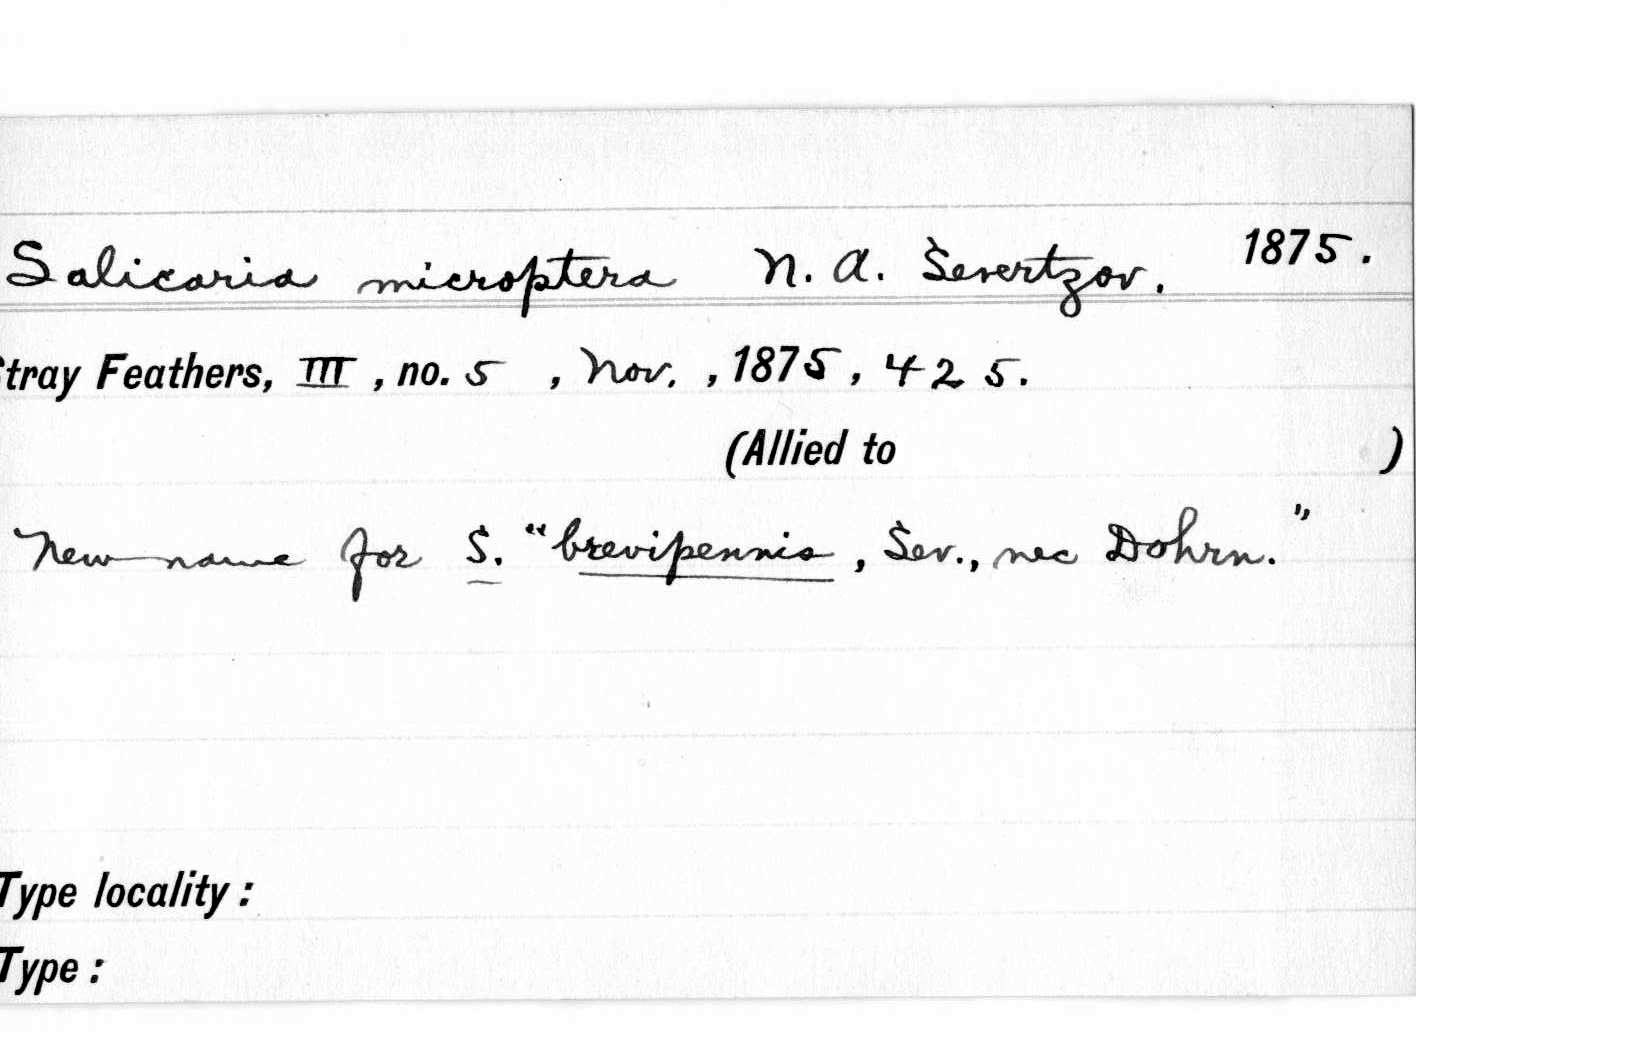 Salicaria microptera N. A. Severtzov. 1875.
Stray Feathers, III, no. 5, Nov., 1875, 425.
(Allied to )
New name for S. "brevipennis, Sev., nec Dohrn."
Type locality:
Type: